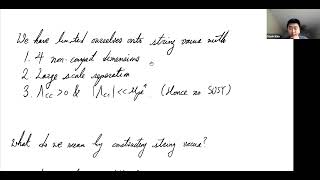 We have limited ourselves onto string vacua with
1. 4 non-compact dimensions
2. Large scale separation
3. Λcc>0 & |Λcc|<<Mpl⁴ (Hence no SUSY)
What do we mean by constructing string vacua?